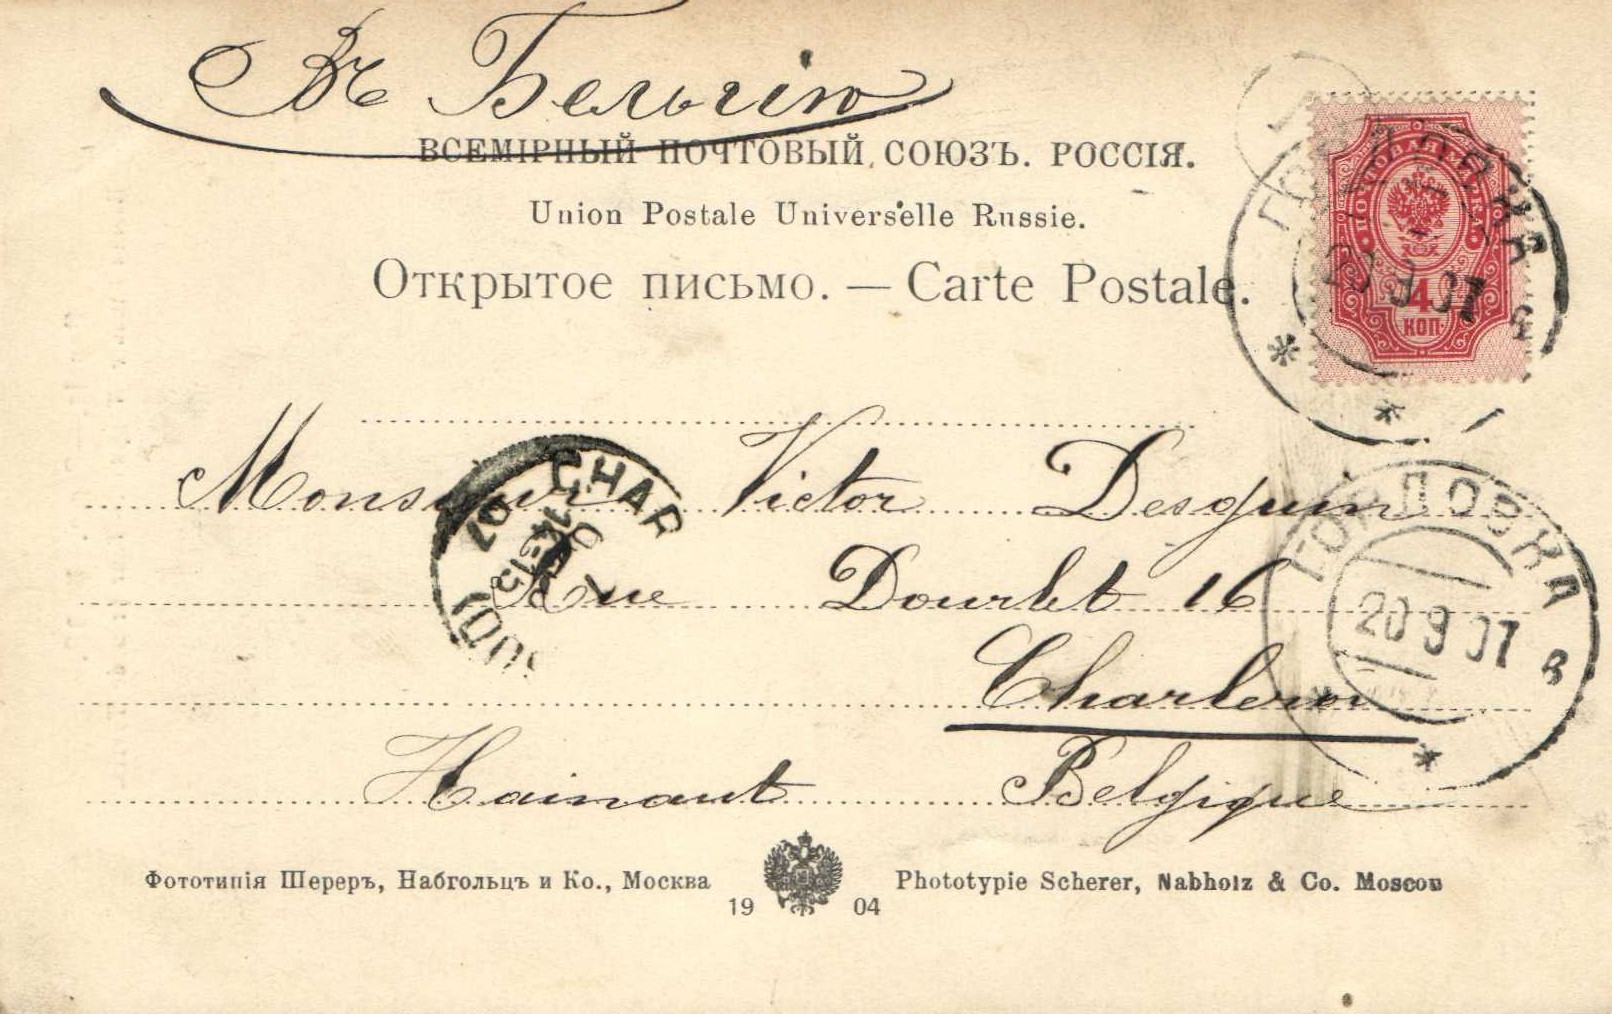 Въ Бельгію
ВСЕМІРНЫЙ ПОЧТОВЫЙ СОЮЗЪ. РОССІЯ.
Union Postale Universelle Russie.
Открытое письмо. — Carte Postale.
ПОЧТОВАЯ МАРКА
4
КОП.
20 9 07
Monsieur Victor Desguin
CHAR
07
ГОРЛОВКА
20 9 07
в
Rue Dourlet 16
Charleroi
Hainaut Belgique
Фототипія Шереръ, Набгольцъ и Ко., Москва
Phototypie Scherer, Nabholz & Co. Moscou
19 04